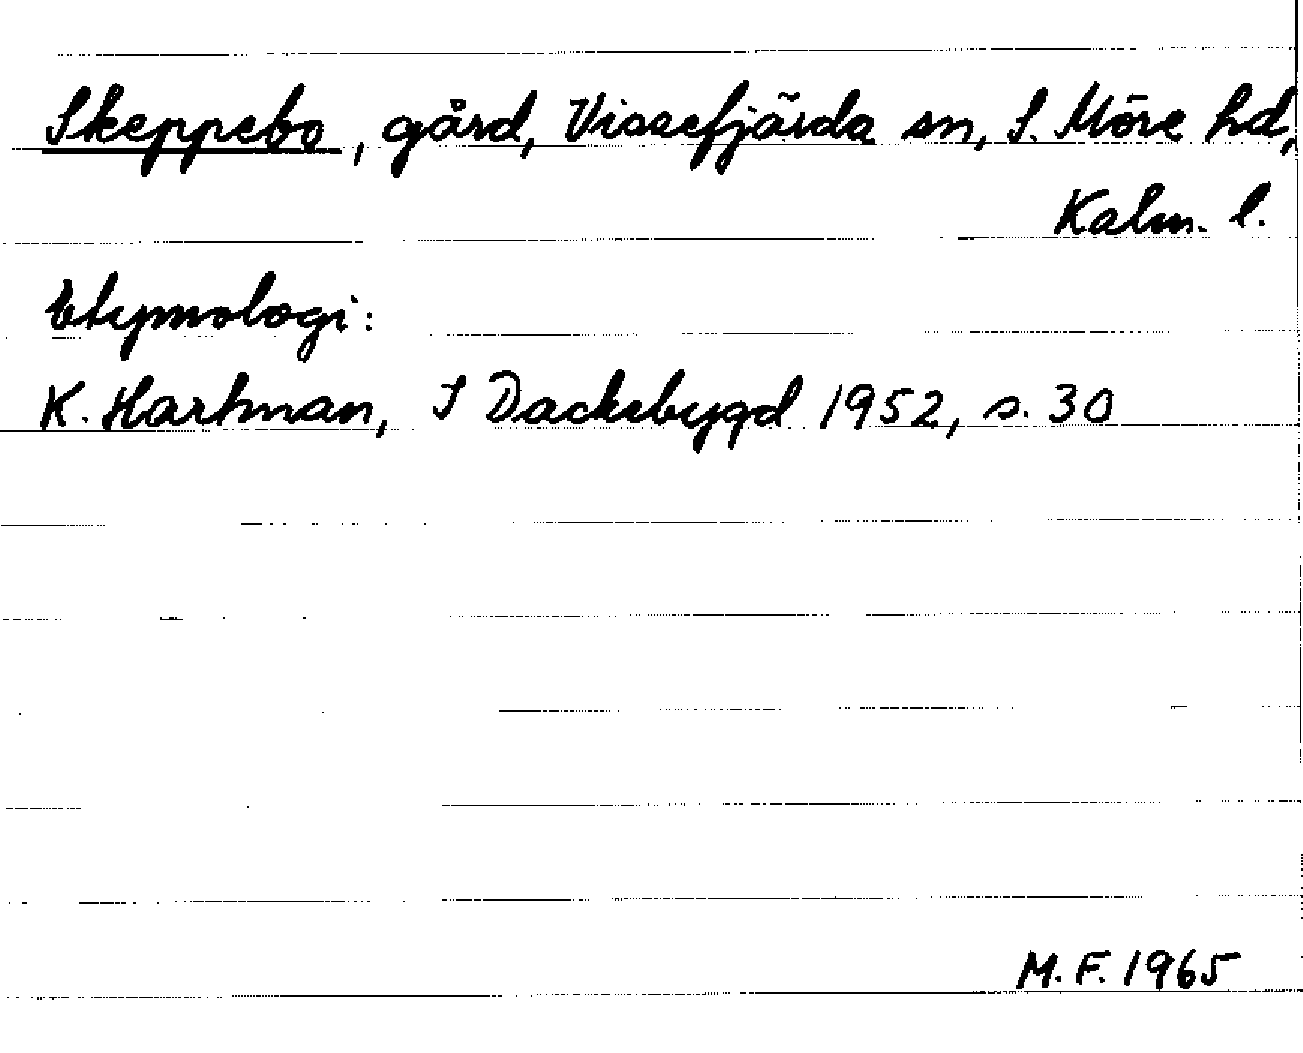 Skeppebo, gård, Vissefjärda sn, S. Möre hd,
Kalm. l.
Etymologi:
K. Hartman, I Dackebygd 1952, s. 30
M. F. 1965